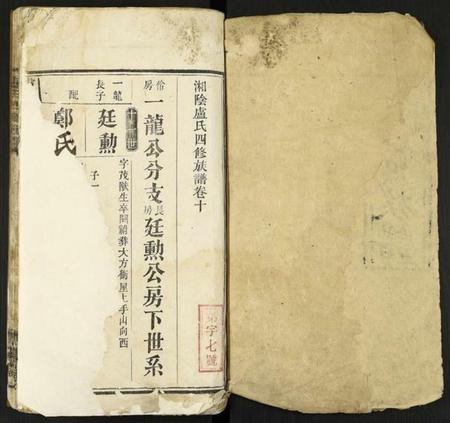 湘陰盧氏四修族譜卷十
俗房一龍公分支長房廷勳公房下世系
一龍長子
廷勳
字茂猷生卒同葬大方衝屋上手山向西
子一
配
鄭氏
字七號